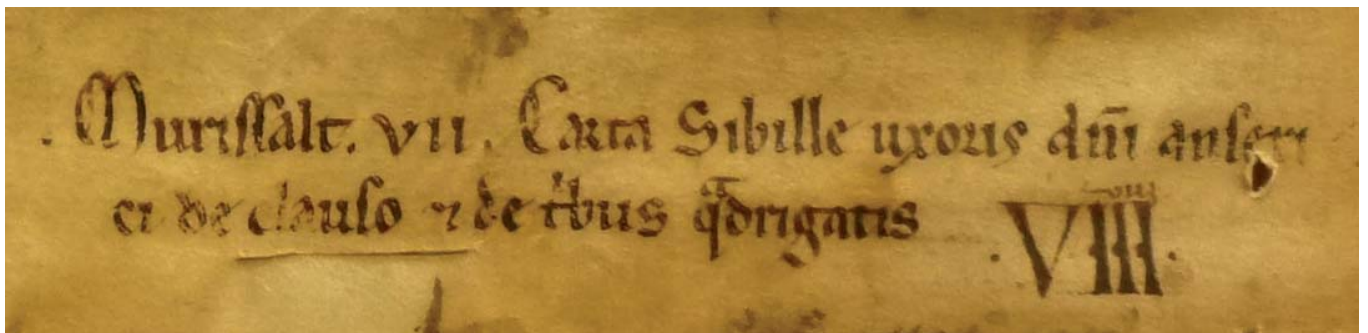 . Murissalt. vii. Carta Sibille uxoris dñi anseri
ci de clauso ⁊ de tⁱbus qᵃdrigatis
.VIII.